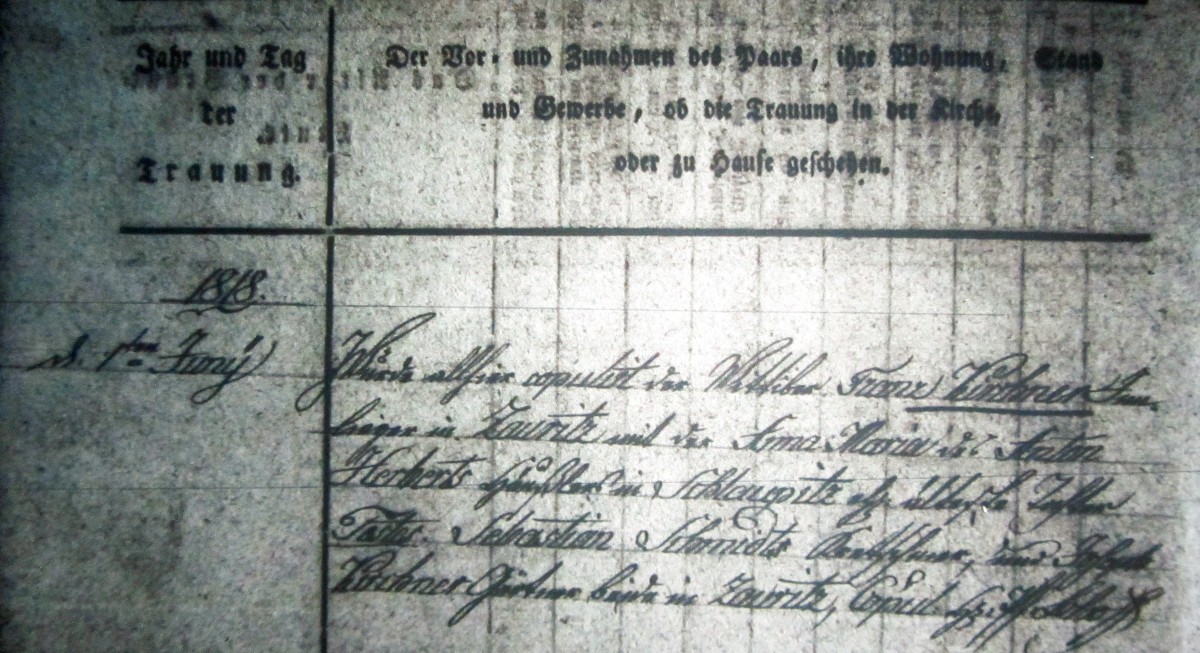 Jahr und Tag
der
Trauung.
Der Vor- und Zunahmen des Paars, ihre Wohnung, Stand
und Gewerbe, ob die Trauung in der Kirche,
oder zu Hause geschehen.
1818.
d. 1ten Junÿ
Wurde allhier copulirt der Wittiber Franz Kirchner Inn-
in Zauritz mit der Anna Maria des Anton
Herberts Häußlers in Schlaupitz ehl. älteste Tochter
Testes. Sebastian Schmidts Kretschmer, und Joseph
Kirchner Gärtner beide in Zauritz, Copul.